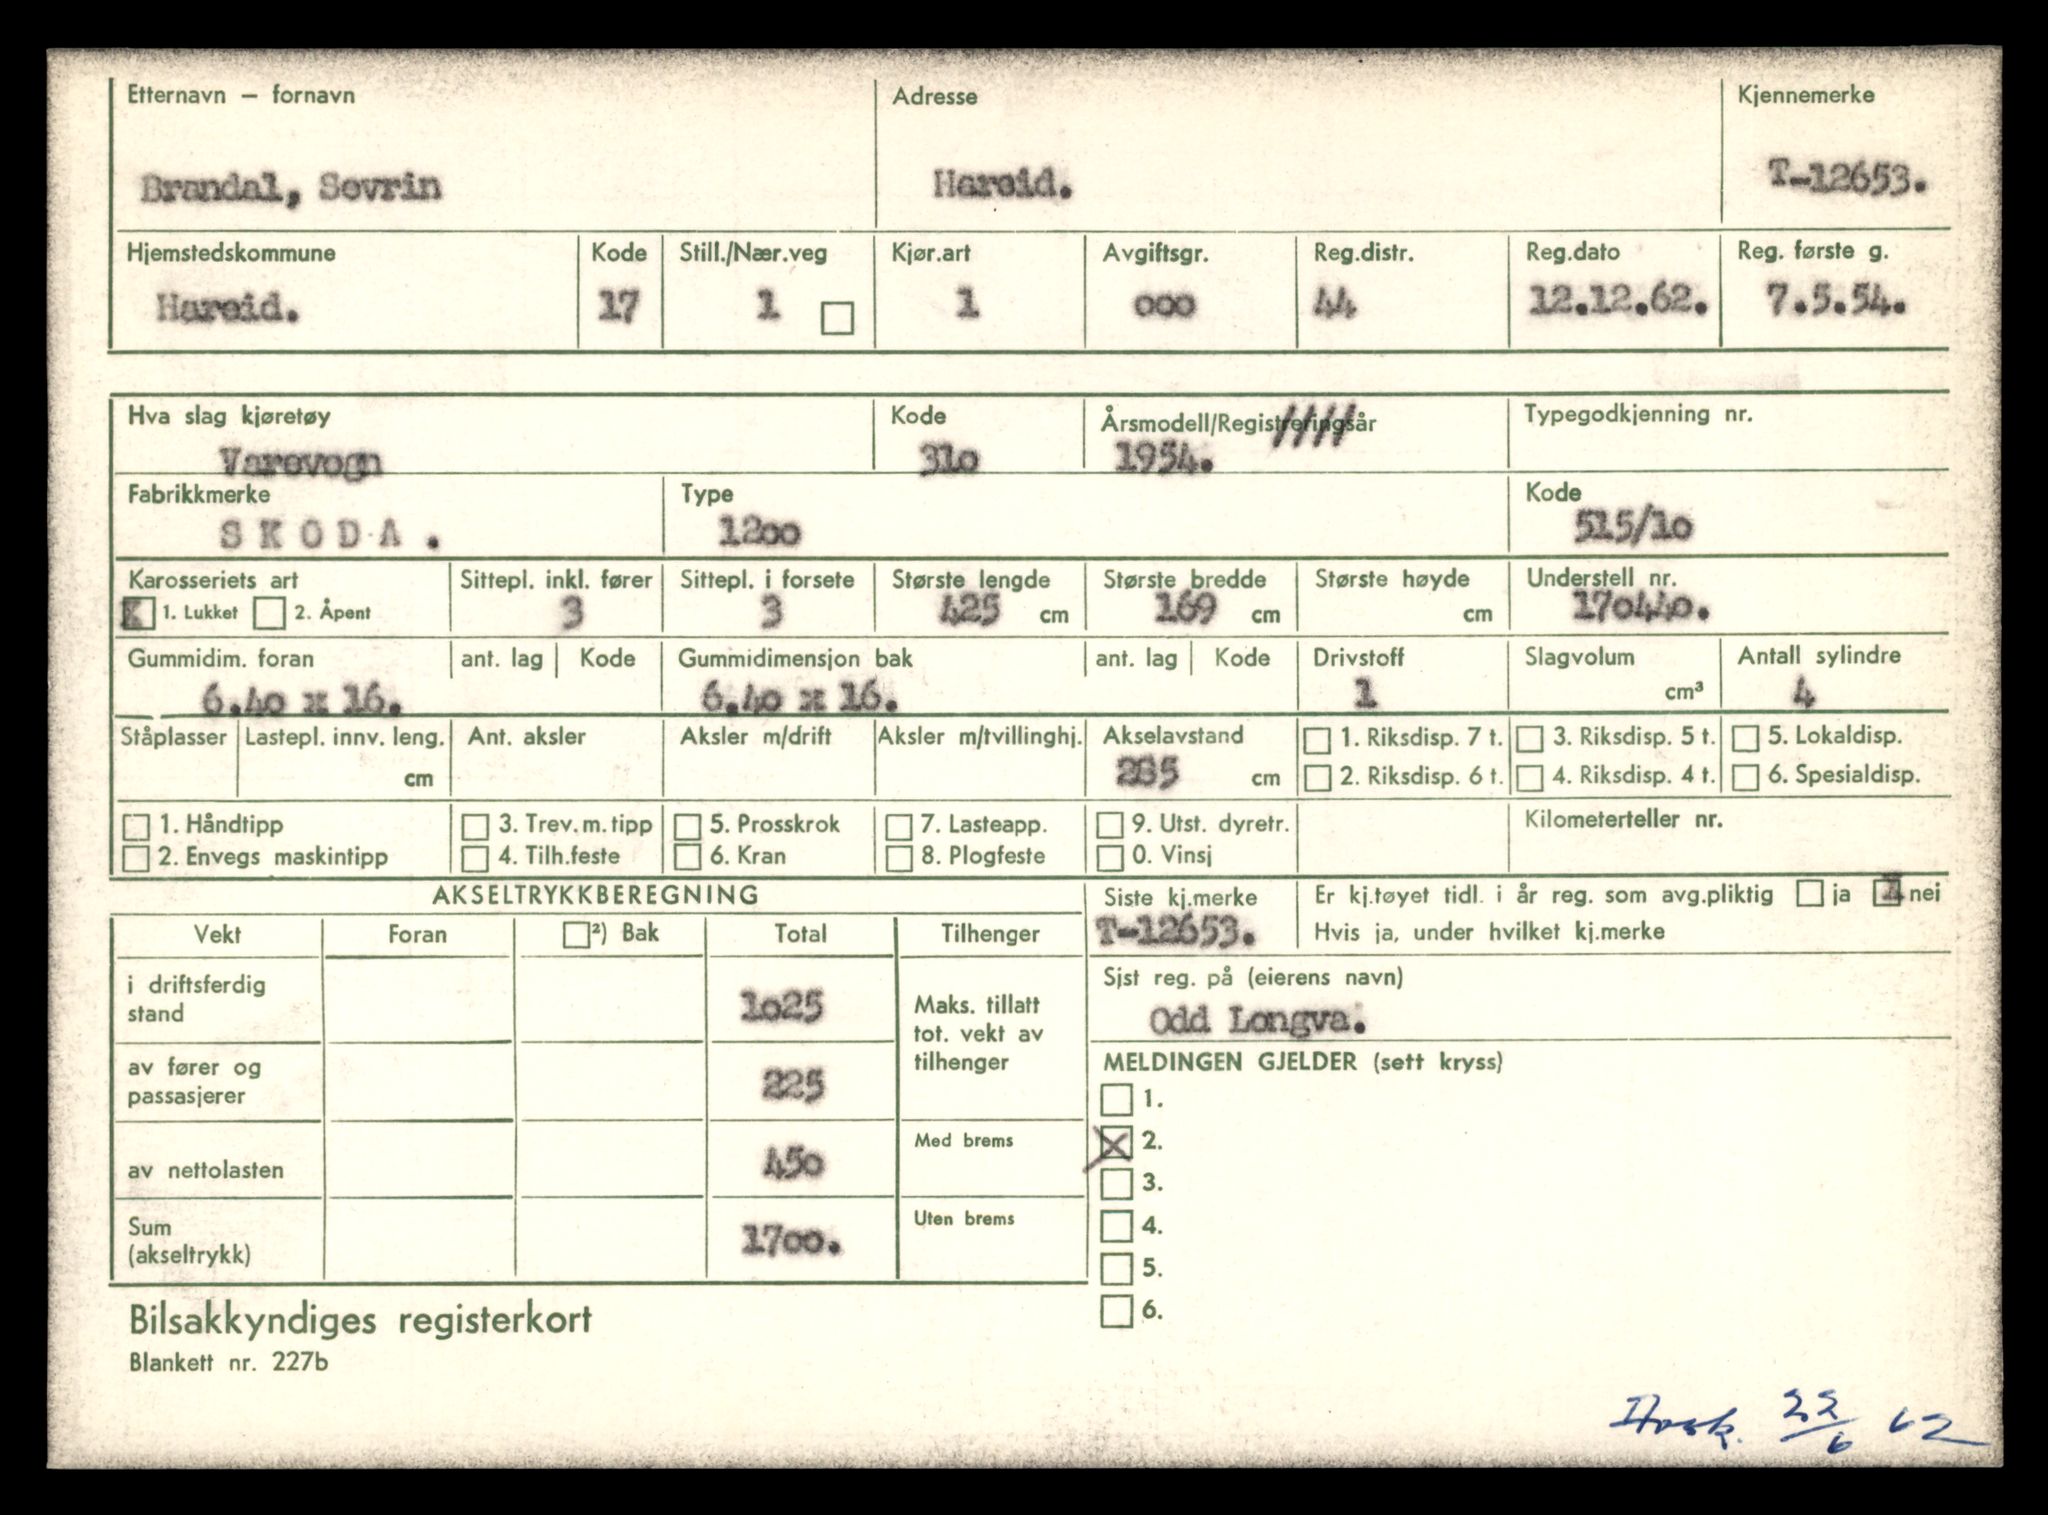 Etternavn – fornavn Adresse Kjennemerke
Brandal, Sevrin Hareid. T-12653.
Hjemstedskommune Kode Still./Nær.veg Kjør.art Avgiftsgr. Reg.distr. Reg.dato Reg. første g.
Hareid. 17 1 1 ooo 44 12.12.62. 7.5.54.
Hva slag kjøretøy Kode Årsmodell/Registreringsår Typegodkjenning nr.
Varevogn 31o 1954. ////
Fabrikkmerke Type Kode
SKODA. 12oo 515/1o
Karosseriets art Sittepl. inkl. fører Sittepl. i forsete Største lengde Største bredde Største høyde Understell nr.
X 1. Lukket 2. Åpent 3 3 425 cm 169 cm cm 17o44o.
Gummidim. foran ant. lag Kode Gummidimensjon bak ant. lag Kode Drivstoff Slagvolum Antall sylindre
6.4o x 16. 6.4o x 16. 1 cm³ 4
Ståplasser Lastepl. innv. leng. Ant. aksler Aksler m/drift Aksler m/tvillinghj. Akselavstand 1. Riksdisp. 7 t. 3. Riksdisp. 5 t. 5. Lokaldisp.
cm 285 cm 2. Riksdisp. 6 t. 4. Riksdisp. 4 t. 6. Spesialdisp.
1. Håndtipp 3. Trev. m. tipp 5. Prosskrok 7. Lasteapp. 9. Utst. dyretr. Kilometerteller nr.
2. Envegs maskintipp 4. Tilh.feste 6. Kran 8. Plogfeste 0. Vinsj
AKSELTRYKKBEREGNING Siste kj.merke Er kj.tøyet tidl. i år reg. som avg.pliktig ja X nei
Vekt Foran ²) Bak Total Tilhenger T-12653. Hvis ja, under hvilket kj.merke
i driftsferdig stand 1o25 Maks. tillatt tot. vekt av tilhenger
Sist reg. på (eierens navn)
Odd Longva.
av fører og passasjerer 225
MELDINGEN GJELDER (sett kryss)
1.
av nettolasten 45o Med brems X 2.
3.
Sum (akseltrykk) 17oo. Uten brems 4.
5.
6.
Bilsakkyndiges registerkort
Blankett nr. 227b
22/6 62